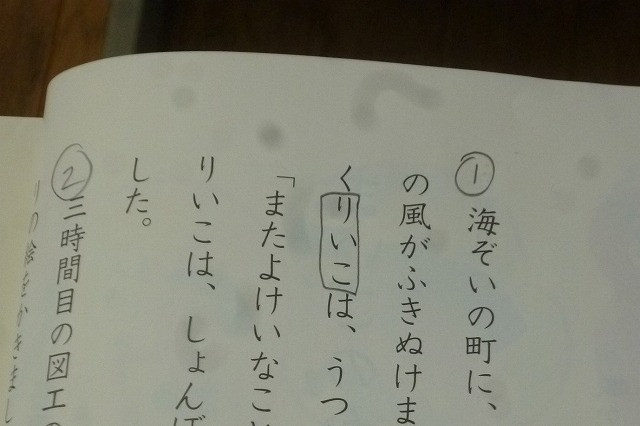 ① 海ぞいの町に、
の風がふきぬけま
くりいこは、うつ
「またよけいなこ
りいこは、しょんぼ
した。
② 三時間目の図工の
りの絵をかきまし